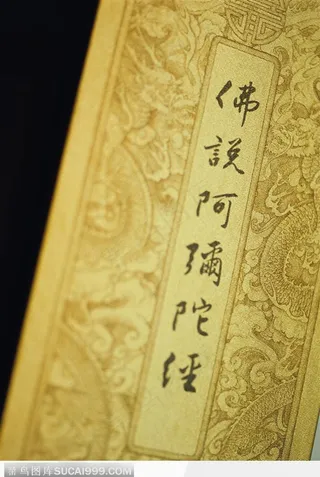 佛說阿彌陀經
素材图库SUCAI999.COM